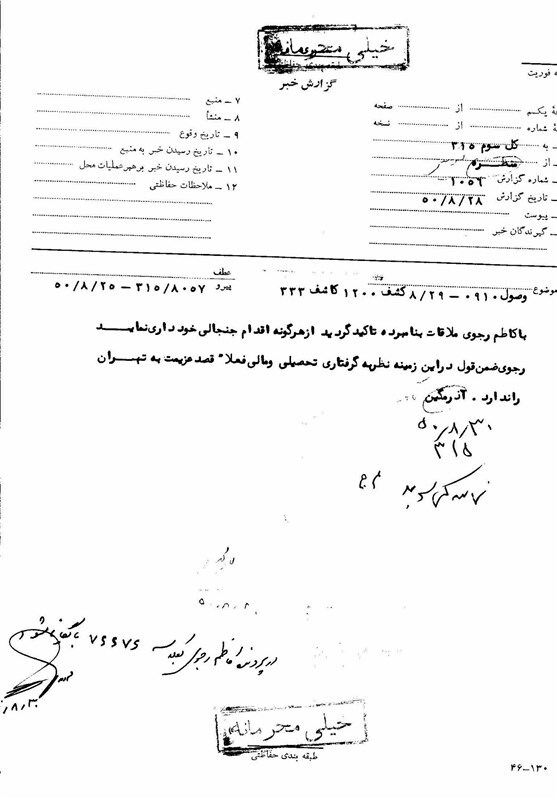 خیلی محرمانه
طبقه بندی حفاظتی
گزارش خبر
به فوریت
صفحه از یکم
نسخه از شماره
به کل سوم ۳۱۵
از
شماره گزارش ۱۰۵۶
تاریخ گزارش ۵۰/۸/۲۸
پیوست
گیرندگان خبر
۷ ـ منبع
۸ ـ منشأ
۹ ـ تاریخ وقوع
۱۰ ـ تاریخ رسیدن خبر به منبع
۱۱ ـ تاریخ رسیدن خبر برهبر عملیات محل
۱۲ ـ ملاحظات حفاظتی
موضوع وصول ۰۹۱۰ – ۸/۲۹ کشف ۱۲۰۰ کاشف ۳۳۳
عطف
پیرو ۳۱۵/۸۰۵۷ – ۵۰/۸/۲۵
باکاظم رجوی ملاقات بنامبرده تاکید گردید ازهرگونه اقدام جنجالی خود داری نماید
رجوی ضمن قول دراین زمینه نظربه گرفتاری تحصیلی ومالی فعلا" قصد عزیمت به تهران
راندارد . آذرمگین
۵۰/۸/۳۰
۳۱۵
در پرونده کاظم رجوی بکلاسه ۷۶۶۷۶ بایگانی شود
خیلی محرمانه
طبقه بندی حفاظتی
۴۶–۱۳۰